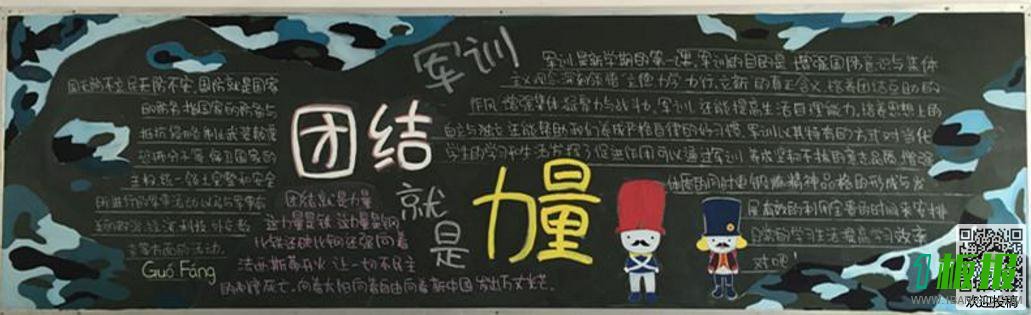 军训
团结
就
是
力量
国无防不立民无防不安,国防就是国家
的防务,指国家的防务与
抵抗侵略制止武装颠覆
主权统一领土完整和安全
所进行的军事活动以及与军事有
关等方面的活动。
Guó Fáng
团结就是力量
这力量是铁 这力量是钢
比铁还硬比钢还强 向着
法西斯蒂开火 让一切不民主
的制度死亡。向着太阳向着自由向着新中国 发出万丈光芒。
军训是新学期的第一课,军训的目的是 增强国防意识与集体
主义观念
作风 增强集体凝聚力与战斗力。军训 还能提高生活自理能力,培养思想上的
自立与独立还能帮助我们养成严格自律的好习惯。军训以其特有的方式对当代
学生的学习和生活发挥了促进作用可以通过军训 养成坚韧不拔的意志品质,增强
体质的同时更锻炼精神品格的形成与发
展 有效的利用宝贵的时间来安排
日常的学习生活提高学习效率
对吧!
板报
欢迎投稿